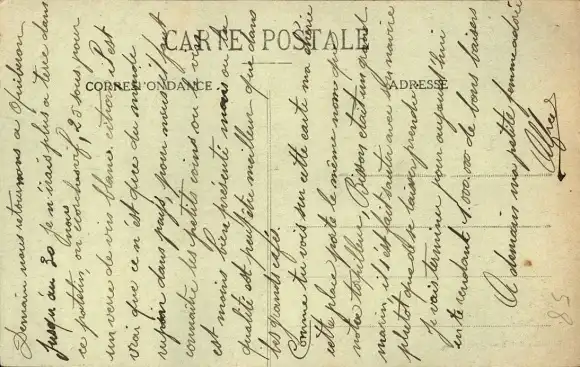 CARTE POSTALE
CORRESPONDANCE
ADRESSE
Demain nous retournons a Quiberon
jusqu'au 30 je n'irais plus a terre dans
ce patelin, on nous écorche vif, 25 sous pour
un verre de vin blanc citron, il est
vrai que ce n'est que du monde
dans pays pour nous il faut
connaître les petits coins ou le vin
est moins bien présenté mais ou la
qualité est peut être meilleur que dans
les grands cafés.
Comme tu vois sur cette carte ma chérie
cette place porte le même nom que
notre torpilleur, Bisson etait un grand
marin, il s'est fait sauter avec son navire
plutot que de se laisser prendre
Je vais terminer pour aujourd'hui
en te rendant 1.000.000 de bons baisers
A demain ma petite femme adorée
Alfred
85